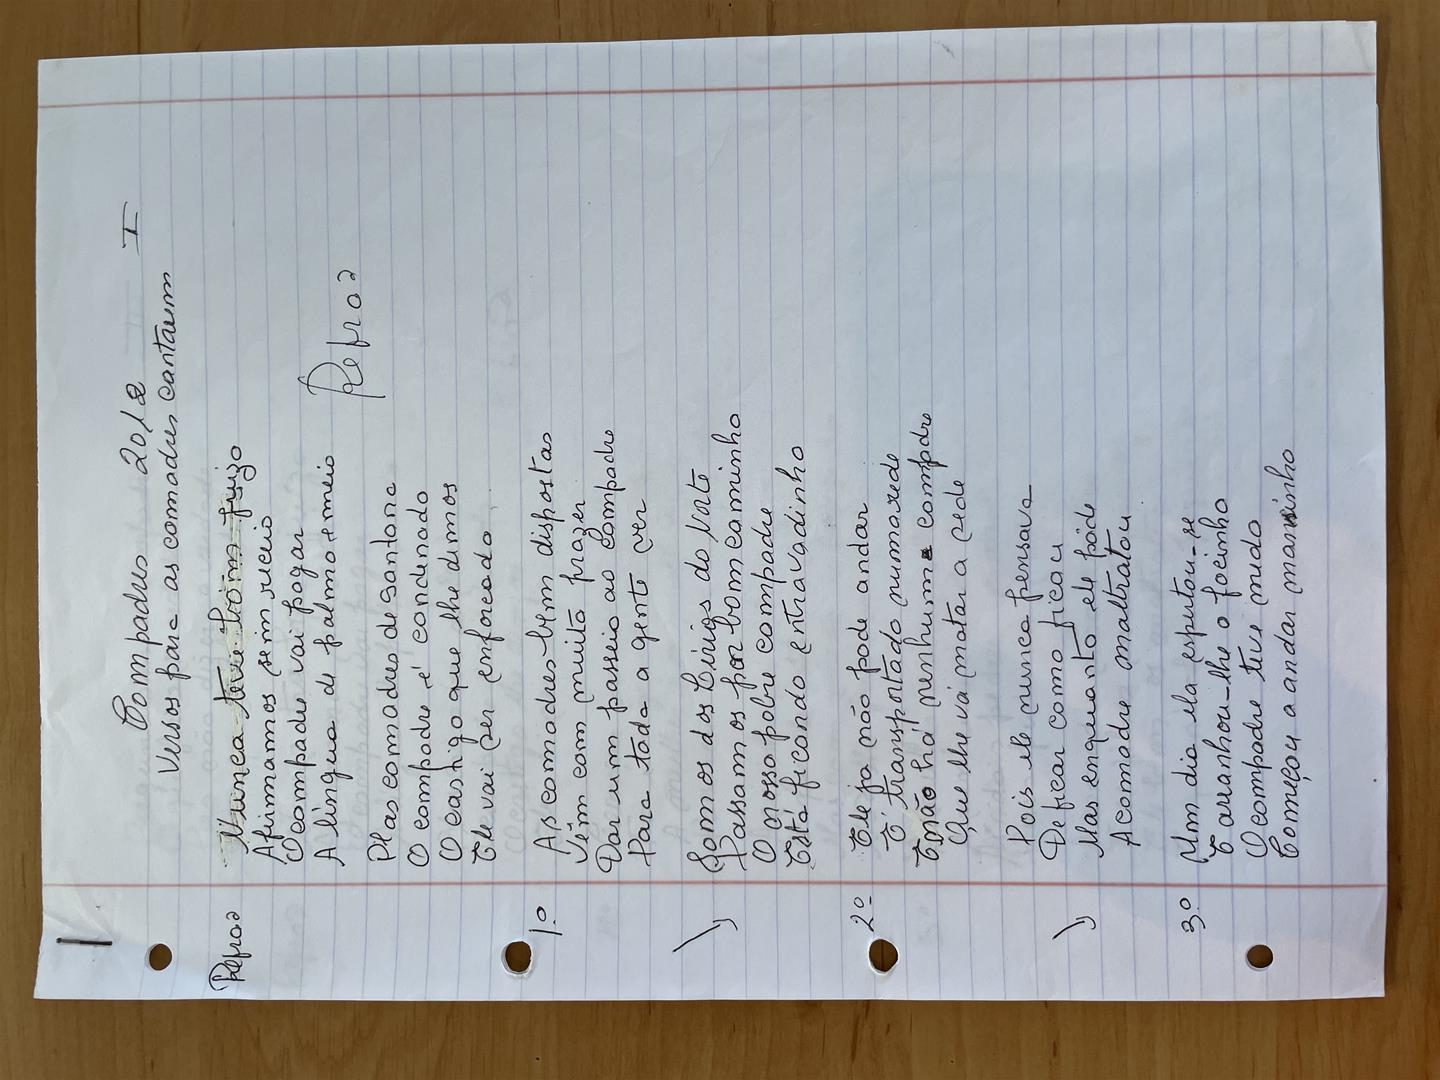 I
Compadres 2012
Versos para as comadres cantarem
Refrao
Nunca teve
Afirmamos sem receio
O compadre vai pagar
A lingua de palmo e meio
Refrao
Plas comadres de santana
O compadre é condenado
O castigo que lhe dimos
Ele vai ser enforcado
1.º As comadres bem dispostas
Vêm com muito prazer
Dar um passeio ao compadre
Para toda a gente ver
Somos dos Lirios do Norte
Passamos por bom caminho
O nosso pobre compadre
Está ficando entravadinho
2.º Ele ja não pode andar
É transportado numa rede
E não há nenhum compadre
Que lhe vá matar a sede
Pois ele nunca pensava
De ficar como ficou
Mas enquanto ele pôde
A comadre maltratou
3.º Um dia ela espertou-se
E arranhou-lhe o focinho
O compadre teve medo
Começou a andar mansinho